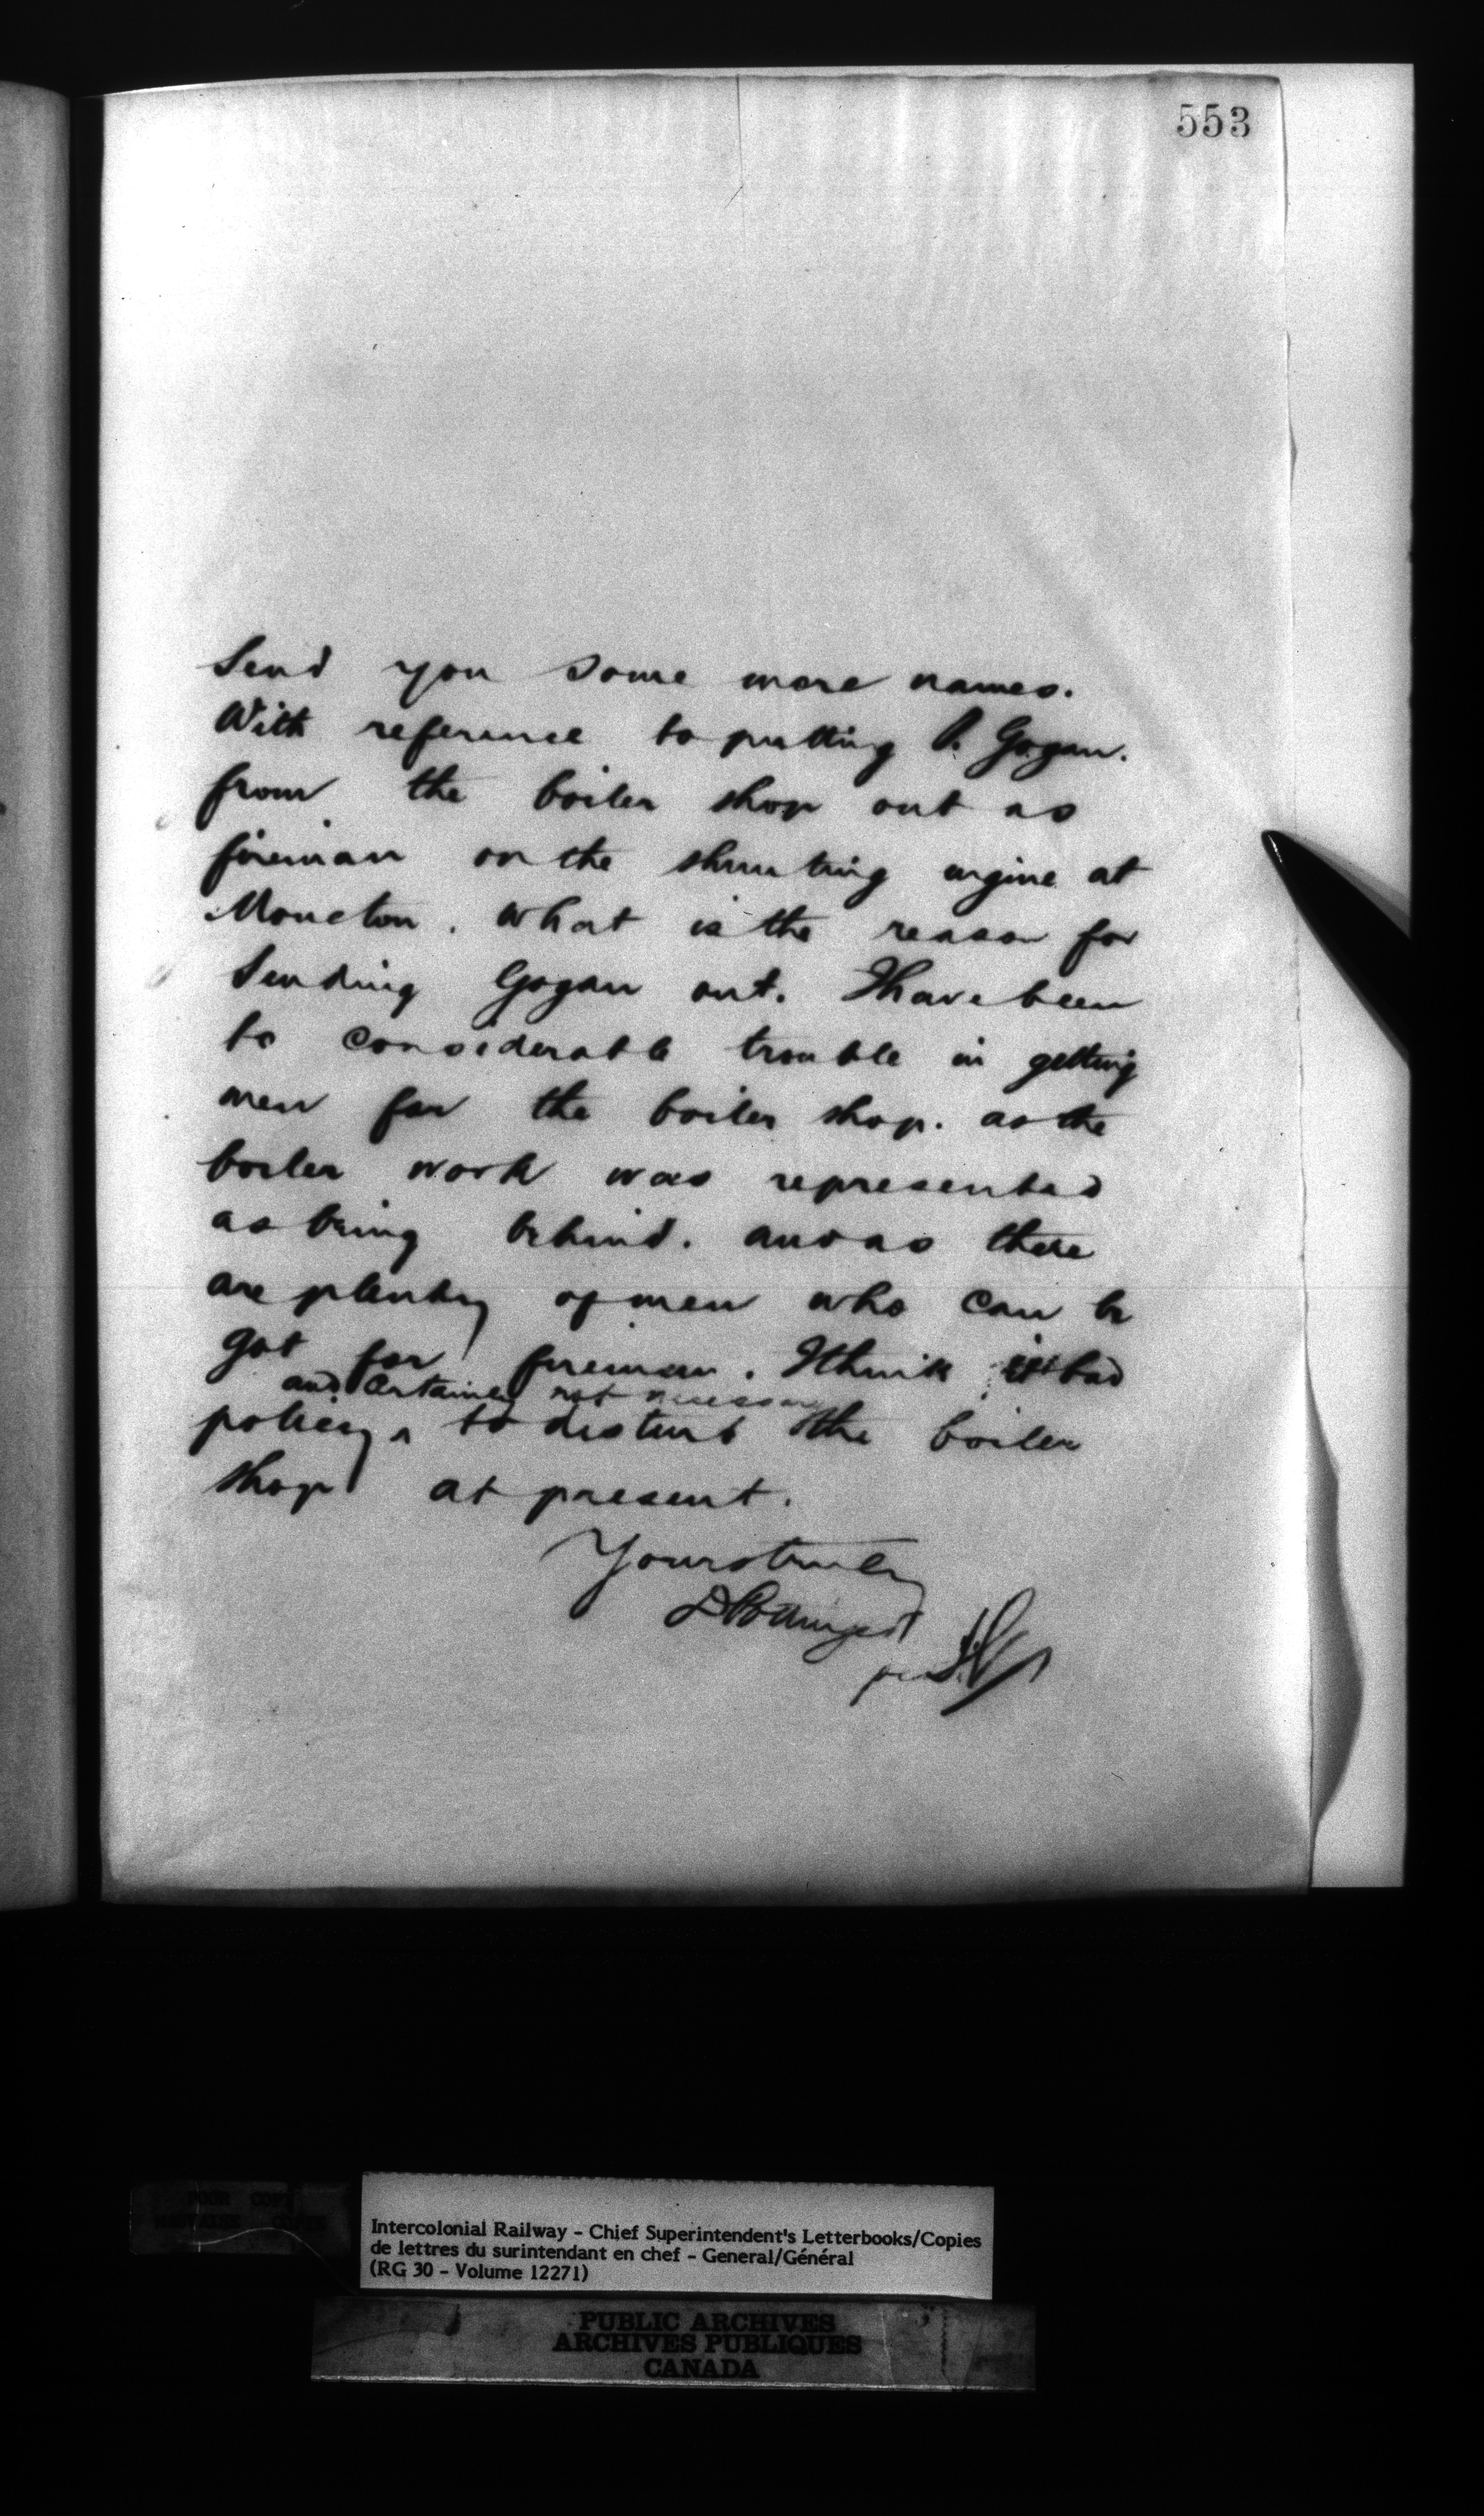 553
Send you some more names.
With reference to putting P. Gogan.
from the boiler shop out as
fireman on the shunting engine at
Moncton. What is the reason for
Sending Gogan out. I have been
to considerable trouble in getting
men for the boiler shop. as the
boiler work was represented
as being behind. and as there
are plenty of men who can be
got for fireman. I think it bad
and certainly not necessary
policy ^ to disturb the boiler
shop at present.
Yours truly
D Pottinger
per
Intercolonial Railway - Chief Superintendent's Letterbooks/Copies
de lettres du surintendant en chef - General/Général
(RG 30 - Volume 12271)
PUBLIC ARCHIVES
ARCHIVES PUBLIQUES
CANADA